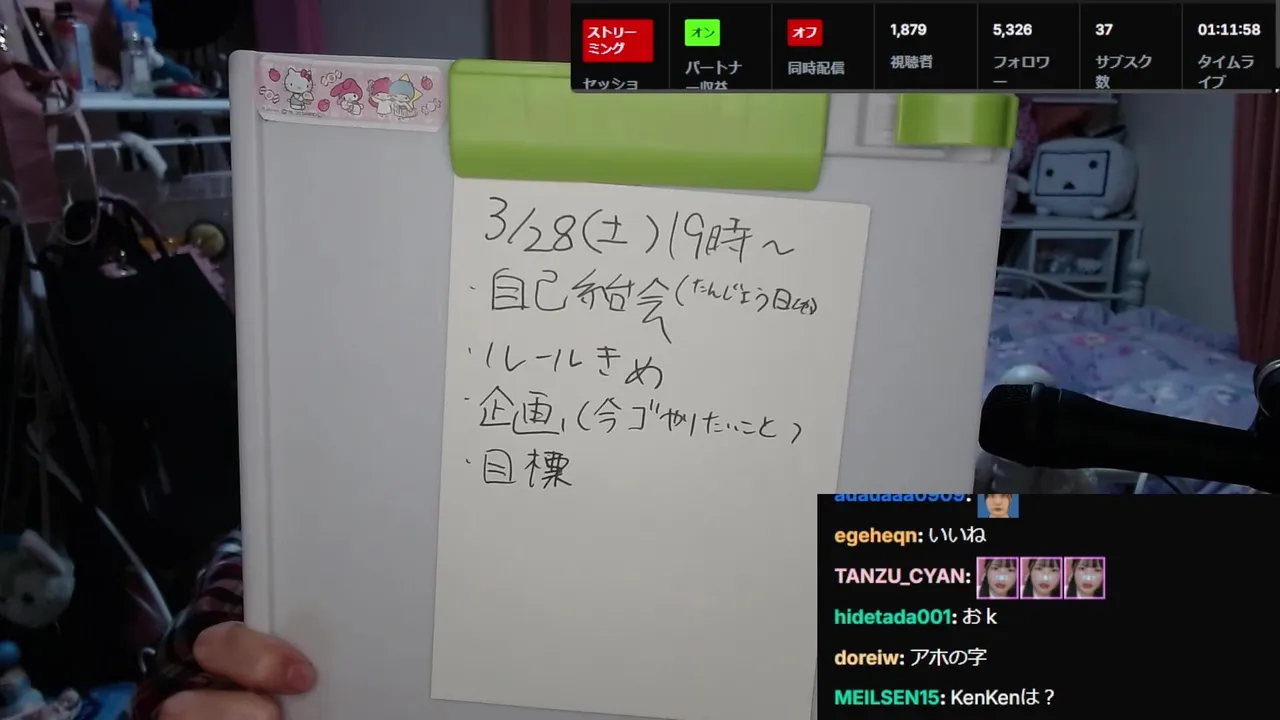 ストリー
ミング
セッショ
オン
パートナ
ー収益
オフ
同時配信
1,879
視聴者
5,326
フォロワ
ー
37
サブスク
数
01:11:58
タイムラ
イブ
3/28(土)19時〜
・自己紹介(たんじょう日も)
・ルールきめ
・企画、(今ゴやりたいこと)
・目標
adadaaa0909:
egeheqn: いいね
TANZU_CYAN:
hidetada001: おk
doreiw: アホの字
MEILSEN15: KenKenは？